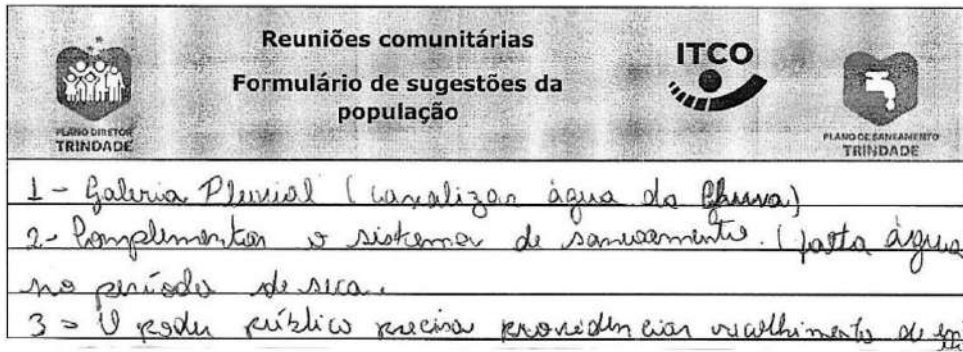 Reuniões comunitárias
Formulário de sugestões da
população
PLANO DIRETOR
TRINDADE
ITCO
PLANO DE SANEAMENTO
TRINDADE
1 - Galeria Pluvial (canalizar água da Chuva)
2 - Complementar o sistema de saneamento. (falta água
no período de seca.
3 = O poder público precisa providenciar recolhimento de